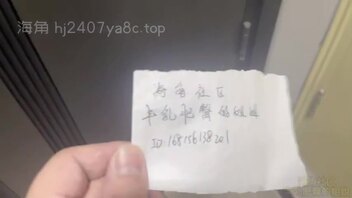 海角 hj2407ya8c.top
海角社区
丰乳肥臀的姐姐
ID:168156138201